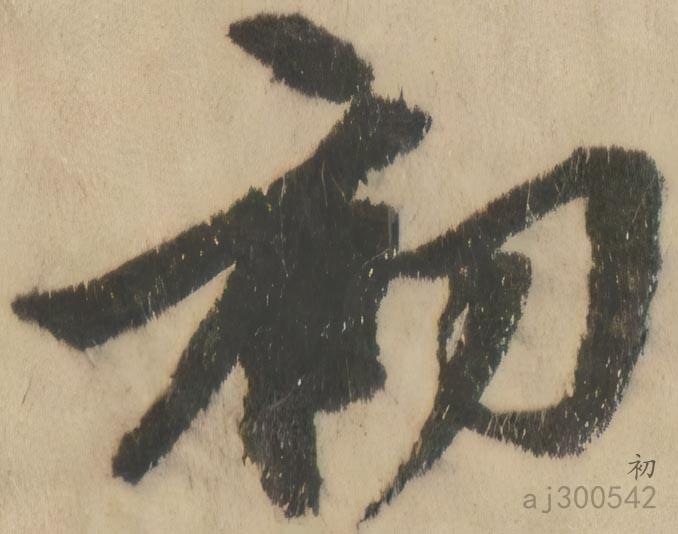 初
初
aj300542